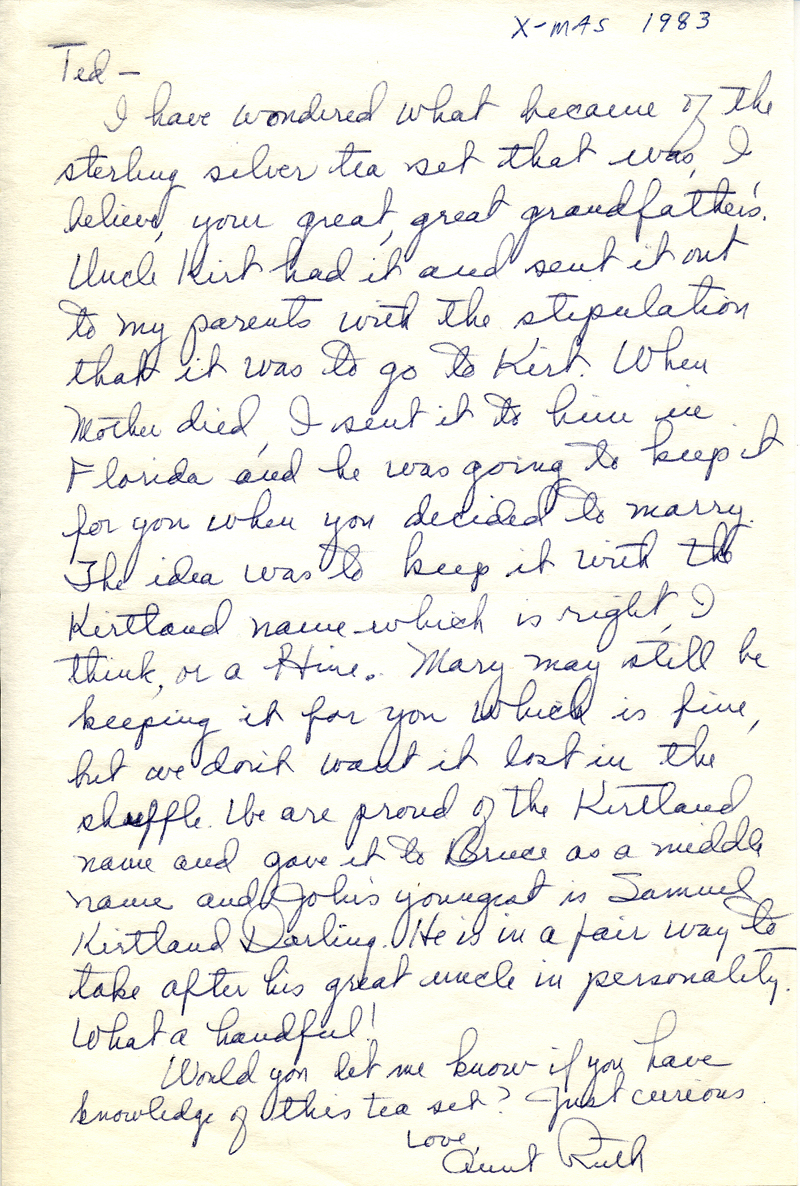 X-MAS 1983
Ted —
I have wondered what became of the
sterling silver tea set that was, I
believe, your great, great grandfather's.
Uncle Kirt had it and sent it out
to my parents with the stipulation
that it was to go to Kirt. When
Mother died, I sent it to him in
Florida and he was going to keep it
for you when you decided to marry.
The idea was to keep it with the
Kirtland name which is right, I
think, or a Hine. Mary may still be
keeping it for you which is fine,
but we don't want it lost in the
shuffle. We are proud of the Kirtland
name and gave it to Bruce as a middle
name and John's youngest is Samuel
Kirtland Darling. He is in a fair way to
take after his great uncle in personality.
What a handful!
Would you let me know if you have
knowledge of this tea set? Just curious.
Love,
Aunt Ruth